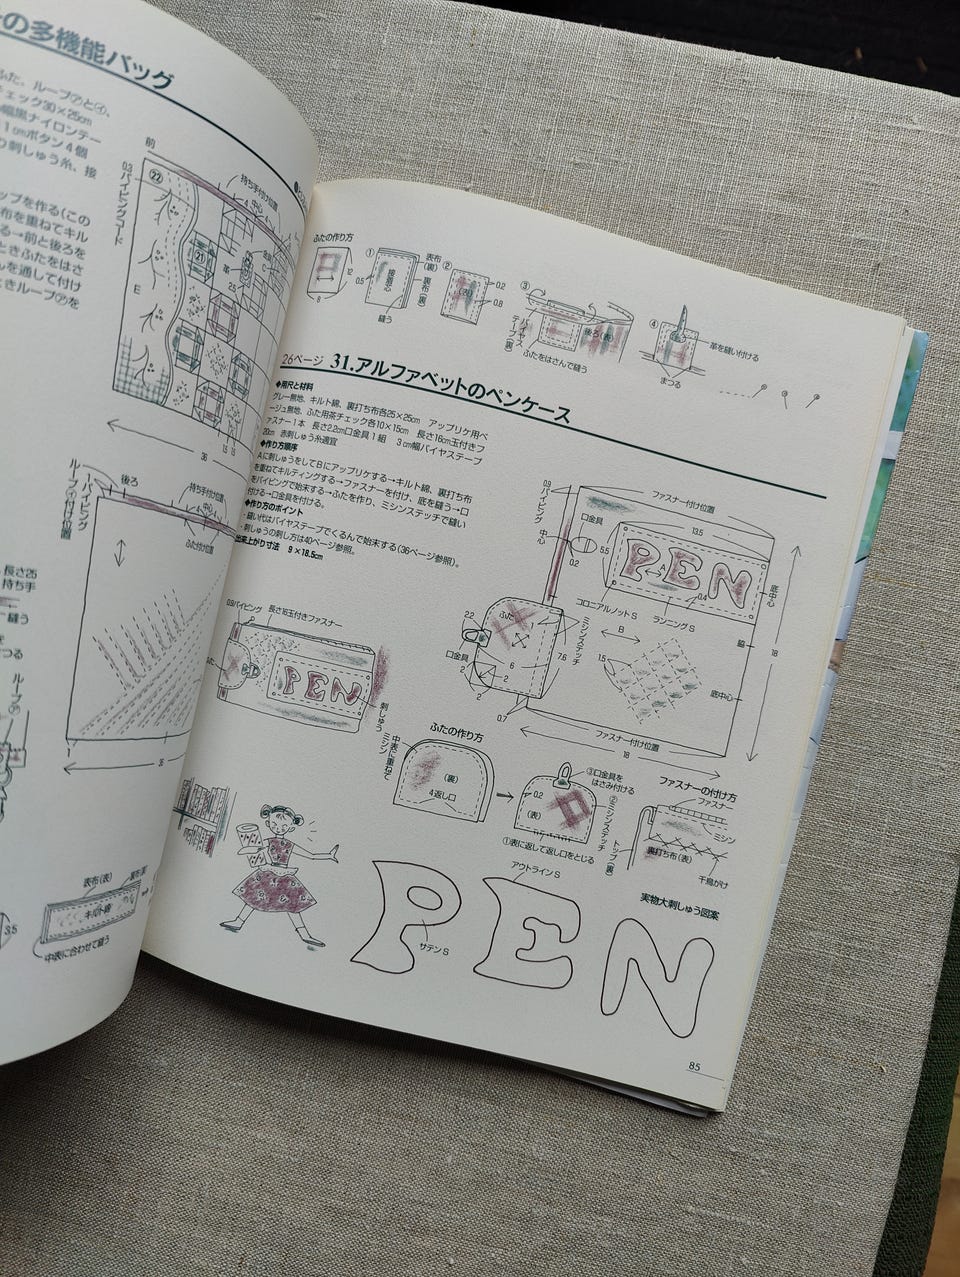 の多機能バッグ
ふた、ループ㋐と㋑、
チェック30×25cm
幅黒ナイロンテー
1cmボタン4個
り刺しゅう糸、接
ップを作る(この
布を重ねてキル
る→前と後ろを
ときふたをはさ
を通して付け
ときループ㋐を
前
0.3パイピングコード
持ち手付け位置
中心
4
4
22
21
革
2.5
E
36
1.5
1.5
ループ㋑付け位置
パイピング
後ろ
持ち手付け位置
ふた付け位置
長さ25
持ち手
縫う
つる
ループ
36
表布(表)
裏布(裏)
キルト綿
中表に合わせて縫う
3.5
ふたの作り方
12
8
①
0.5
接着芯
縫う
表布(裏)
裏布(裏)
②
(表)
0.2
0.8
③
バイヤステープ(裏)
後ろ(表)
ふたをはさんで縫う
④
革を縫い付ける
まつる
26ページ 31.アルファベットのペンケース
◆用尺と材料
グレー無地、キルト綿、裏打ち布各25×25cm アップリケ用ベ
ージュ無地、ふた用茶チェック各10×15cm 長さ16cm玉付きフ
ァスナー1本 長さ2.2cm口金具1組 3cm幅バイヤステープ
20cm 赤刺しゅう糸適宜
◆作り方順序
Aに刺しゅうをしてBにアップリケする→キルト綿、裏打ち布
を重ねてキルティングする→ファスナーを付け、底を縫う→口
をパイピングで始末する→ふたを作り、ミシンステッチで縫い
付ける→口金具を付ける。
◆作り方のポイント
・縫い代はバイヤステープでくるんで始末する(36ページ参照)。
・刺しゅうの刺し方は40ページ参照。
出来上がり寸法 9×18.5cm
0.9パイピング
中心
ファスナー付け位置
口金具
13.5
5.5
0.2
PEN
A
0.4
コロニアルノットS
ランニングS
底中心
脇
18
B
1.5
底中心
ミシンステッチ
ふた
2.2
口金具
7.6
6
2
2
2
0.7
ファスナー付け位置
18
0.9パイピング
長さ16玉付きファスナー
PEN
刺しゅう
ふたの作り方
中表に重ねてミシン
(裏)
4返し口
③口金具をはさみ付ける
0.2
(表)
②ミシンステッチ
①表に返して返し口をとじる
ファスナーの付け方
ファスナー
ミシン
トップ(裏)
裏打ち布(表)
千鳥がけ
実物大刺しゅう図案
アウトラインS
PEN
サテンS
85